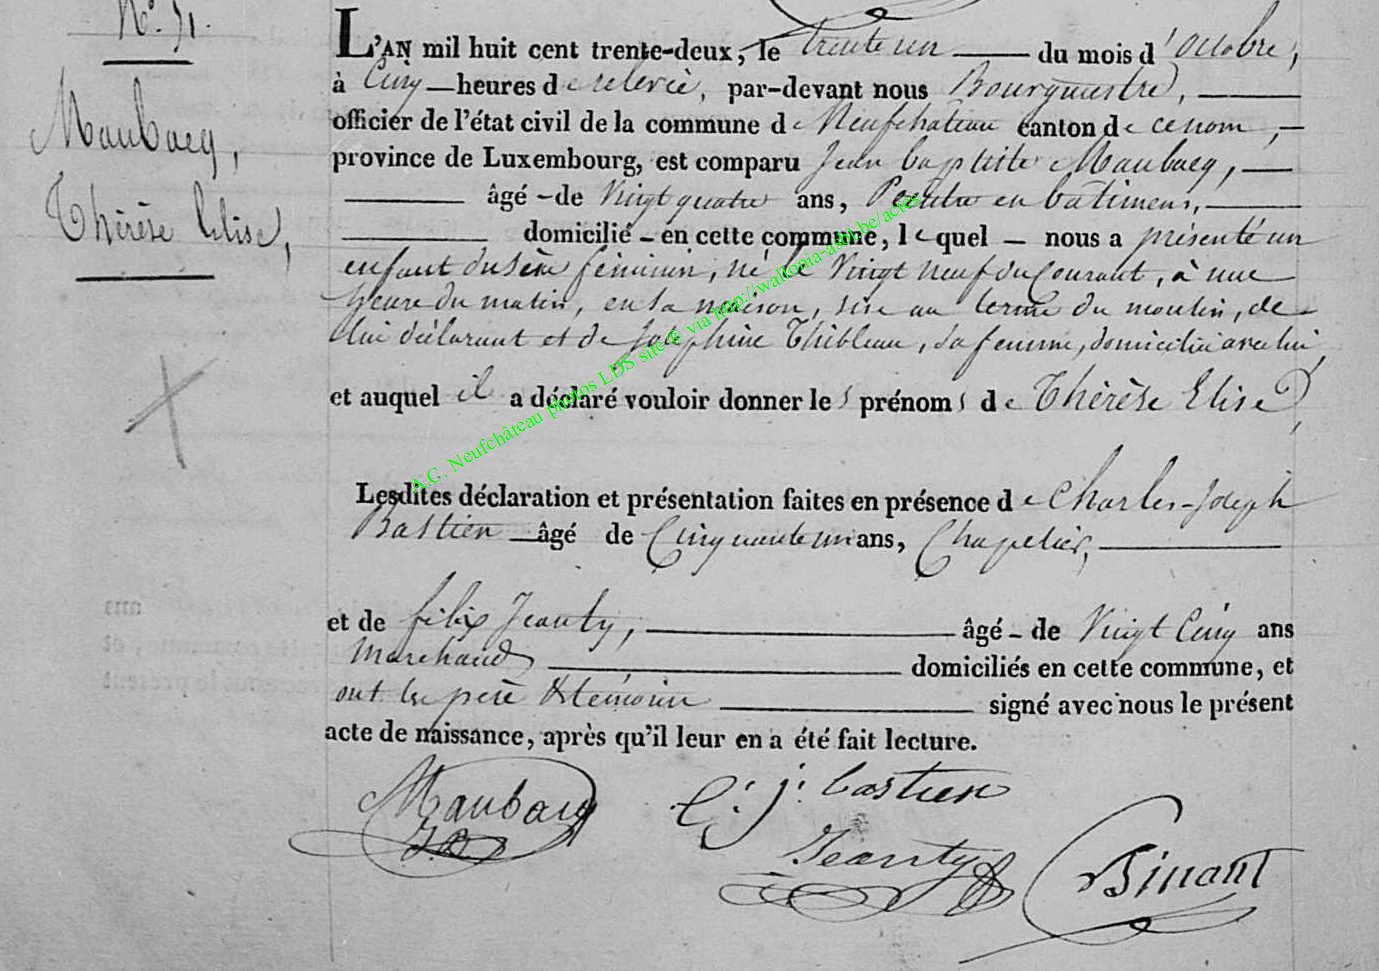 N° 71.
Maubacq,
Thérèse Elise,
L'AN mil huit cent trente-deux, le trente un du mois d'octobre,
à Cinq heures de relevée, par-devant nous Bourgmestre,
officier de l'état civil de la commune de Neufchateau canton de ce nom,
province de Luxembourg, est comparu Jean Baptiste Maubacq,
âgé de Vingt quatre ans, Peintre en bâtimens,
domicilié en cette commune, lequel nous a présenté un
enfant du sexe féminin, né le Vingt neuf du Courant, à une
heure du matin, en sa maison, sise au terme du moulin, de
lui déclarant et de Joséphine Thibleau, sa femme, domiciliée avec lui,
et auquel il a déclaré vouloir donner les prénoms de Thérèse Elise,
Lesdites déclaration et présentation faites en présence de Charles-Joseph
Bastien âgé de Cinquante un ans, Chapelier,
et de félix Jeanty, âgé de Vingt Cinq ans
Marchand domiciliés en cette commune, et
ont les père & témoins signé avec nous le présent
acte de naissance, après qu'il leur en a été fait lecture.
Maubacq
C. j. bastien
Jeanty
Binant
A.G. Neufchâteau photos LDS site © via http://wallonia-asbl.be/actes